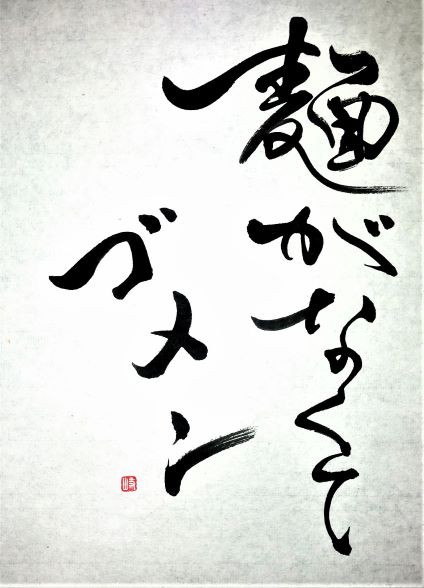 麺がなくて
ゴメン